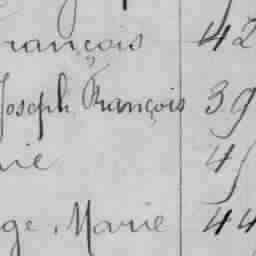 rançois 42
Joseph François 39
rie 45
ge, Marie 44